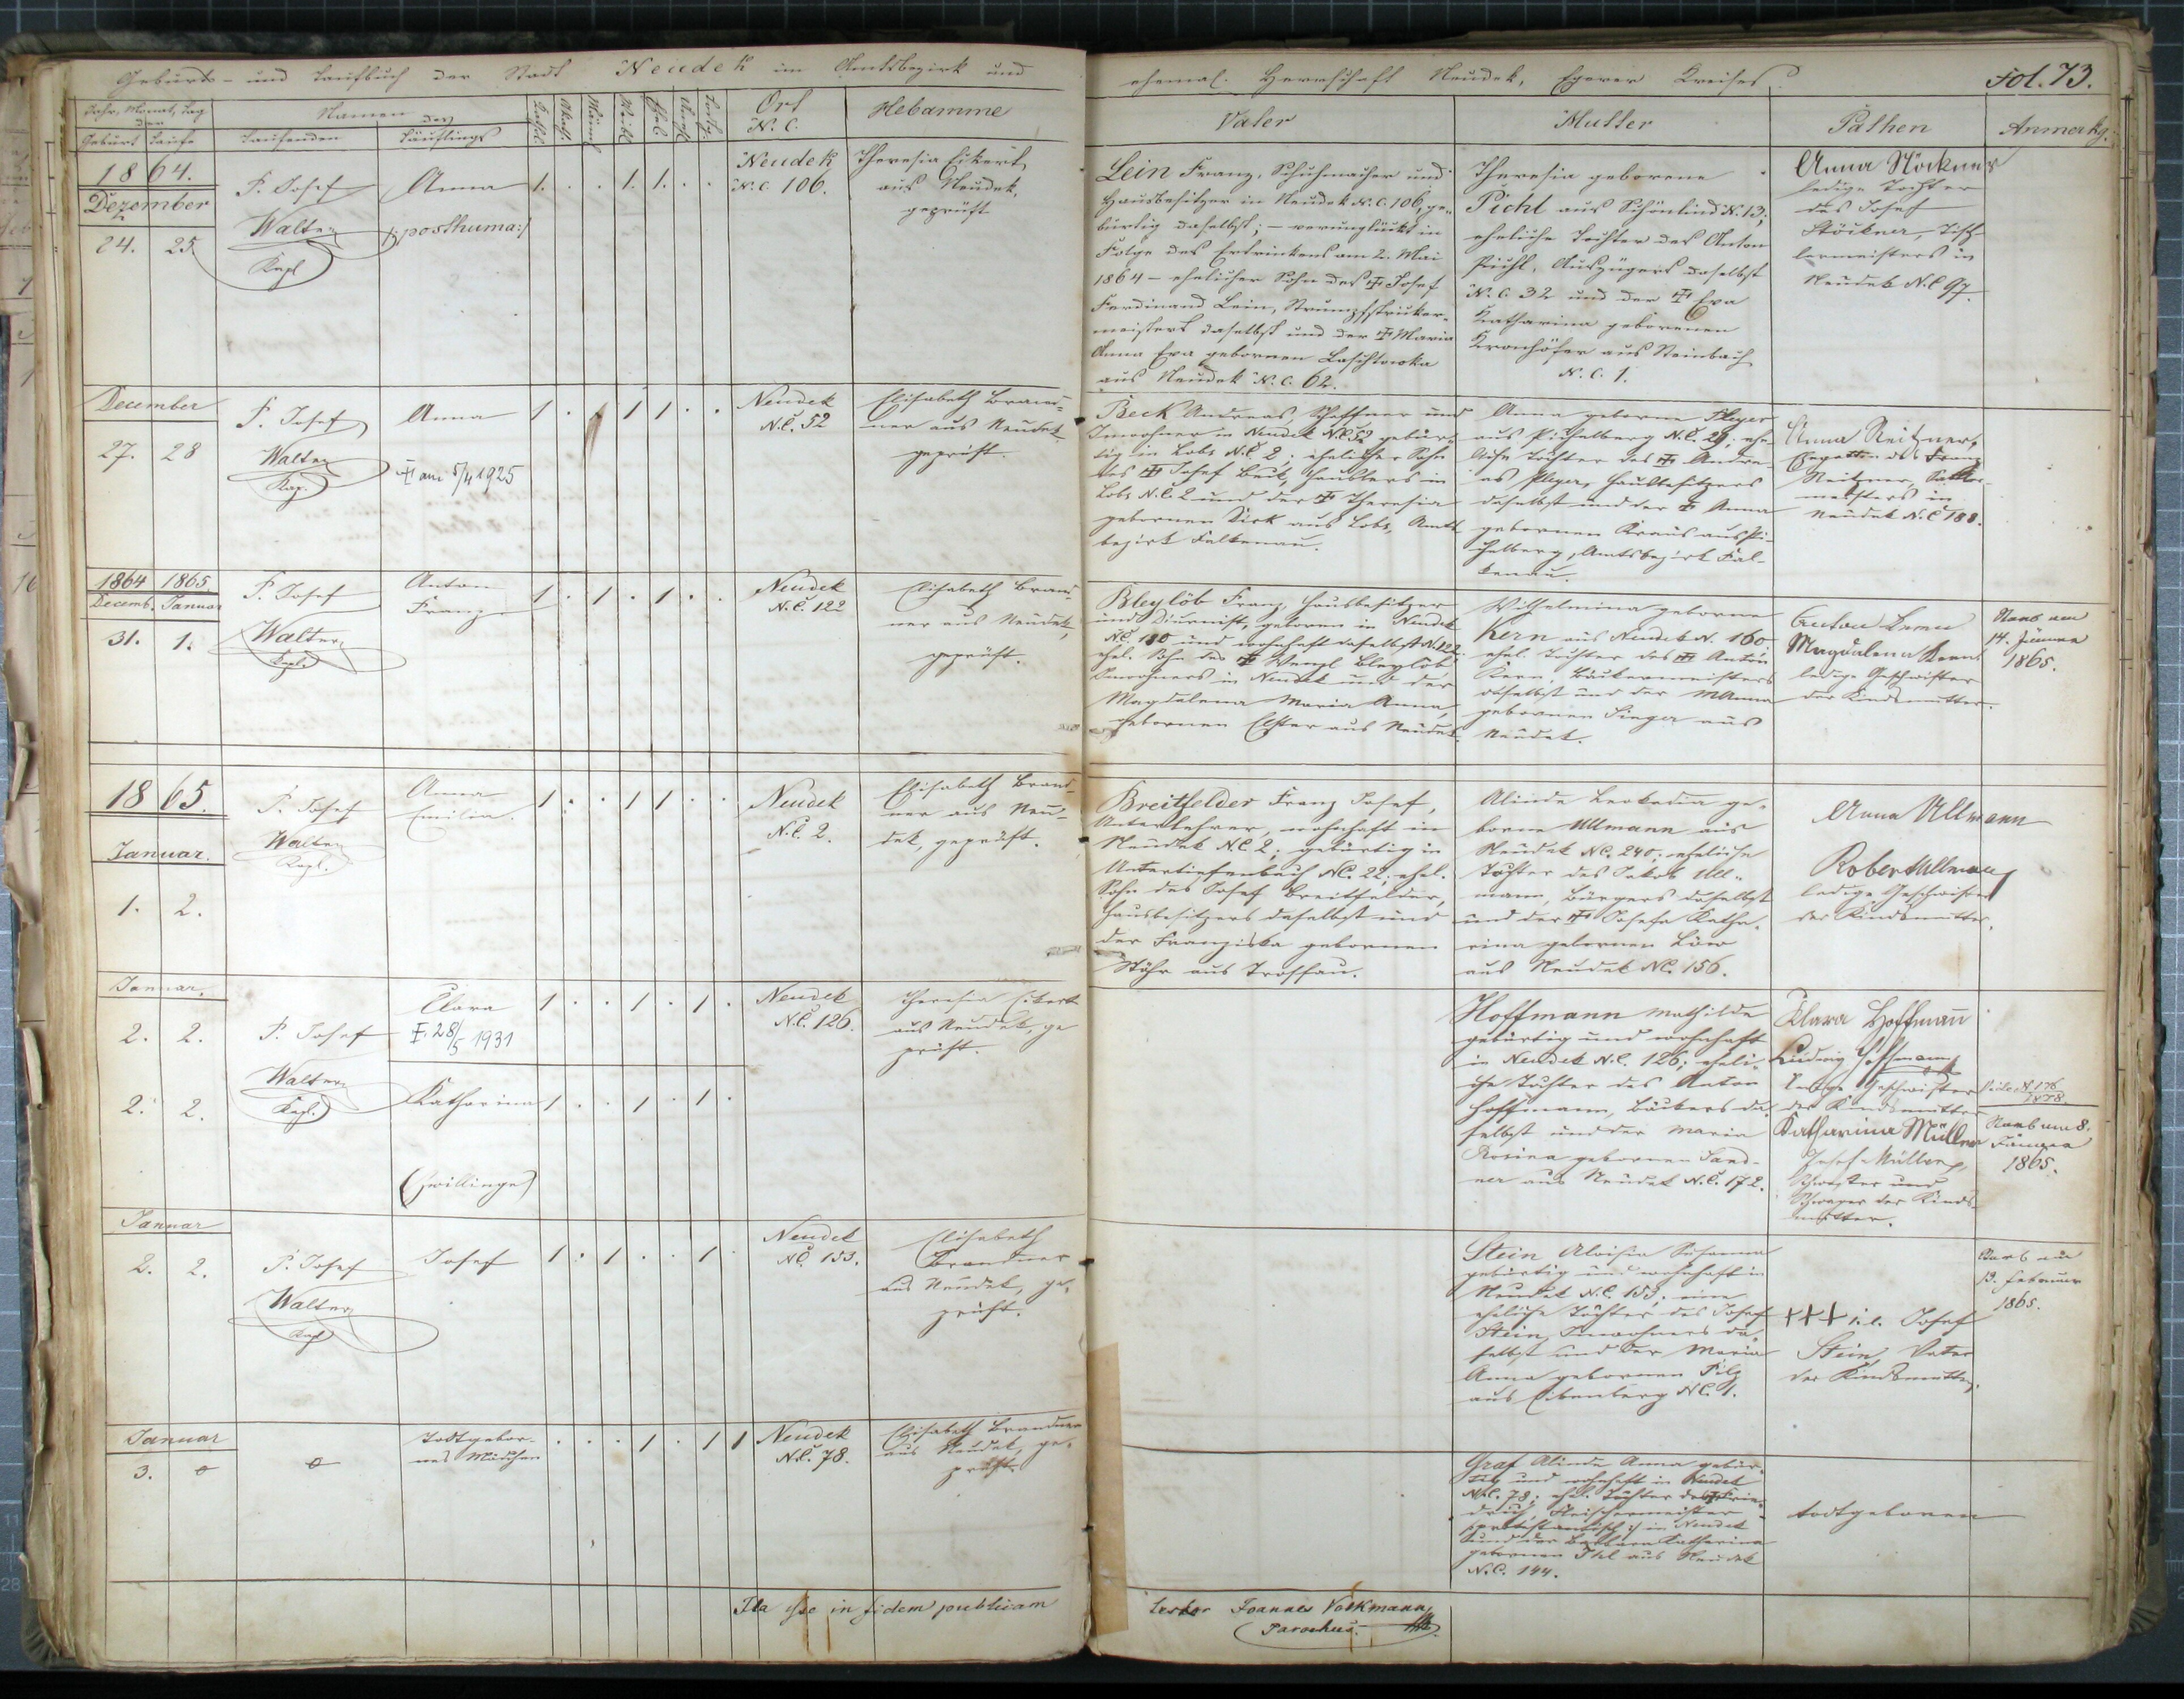 Geburts- und Taufbuch der Stadt Neudek im Amtsbezirk und
ehemal. Herrschaft Neudek, Egerer Kreises.
Fol. 73.
Jahr, Monat, Tag
der
Geburt Taufe
Namen
des
Taufenden
Täuflings
Kathol.
Männl.
Weibl.
Ehel.
Ort
N. C.
Hebamme
Vater
Mutter
Pathen
Anmerkg.
1864.
Dezember
24. 25.
P. Josef
Walter
Kapl
Anna
/:posthuma:/
1. . . 1. 1. . .
Neudek
N. C. 106.
Theresia Eikert
aus Neudek,
geprüft
Lein Franz, Schuhmacher und
Hausbesitzer in Neudek N. C. 106, ge-
bürtig daselbst; – verunglückt in
Folge des Ertrinkens am 2. Mai
1864 – ehelicher Sohn des † Josef
Ferdinand Lein, Strumpfstriker-
meisters daselbst und der † Maria
Anna Eva gebornen Laschtowka
aus Neudek N. C. 62.
Theresia geborene
Pichl aus Schönlind N. 13;
eheliche Tochter des Anton
Pichl, Auszüglers daselbst
N. C. 32 und der † Eva
Katharina geborenen
Kronhöfer aus Steinbach
N. C. 1.
Anna Stöckner
ledige Tochter
des Josef
Stöckner, Tisch-
lermeisters in
Neudek N. C. 97.
December
27. 28
P. Josef
Walter
Kap.
Anna
† am 5/4 1925
1 . . 1 1 . .
Neudek
N. C. 52
Elisabeth Brand-
ner aus Neudek,
geprüft.
Beck Andreas, Schaffner und
Inwohner in Neudek N. C. 52 gebür-
tig in Lobs N. C. 2; ehelicher Sohn
des † Josef Beck, Häuslers in
Lobs N. C. 2 und der † Theresia
gebornen Dirk aus Lobs, Amts-
bezirk Falkenau.
Anna geborne Pleyer
aus Pichelberg N. C. 29; ehe-
liche Tochter des † Andre-
as Pleyer, Hausbesitzers
daselbst und der † Anna
gebornen Kraus aus Pi-
chelberg, Amtsbezirk Fal-
kenau.
Anna Reitzner,
Gattin des Franz
Reitzner,
meisters in
Neudek N. C. 188.
1864 1865.
Decemb. Januar
31. 1.
P. Josef
Walter
Kapl.
Anton
Franz
1 . 1 . 1 . .
Neudek
N. C. 122
Elisabeth Brand-
ner aus Neudek,
geprüft.
Bleylöb Franz, Hausbesitzer
und Diurnist, geboren in Neudek
N. C. 180 und wohnhaft daselbst N. 122.
ehel. Sohn des † Wenzl Bleylöb
Inwohners in Neudek und der
Magdalena Maria Anna,
gebornen Elster aus Neudek.
Wilhelmina geborne
Kern aus Neudek N. 160.
ehel. Tochter des † Anton
Kern, Bäckermeisters
daselbst und der M Anna
gebornen Singer aus
Neudek.
Anton Kern
Magdalena Kern
ledige Geschwister
der Kindsmutter.
Starb am
14. Jänner
1865.
1865.
Januar.
1. 2.
P. Josef
Walter
Kapl.
Anna
Emilia.
1 . . 1 1 . .
Neudek
N. C. 2.
Elisabeth Brand-
ner aus Neu-
dek, geprüft.
Breitfelder Franz Josef,
Unterlehrer, wohnhaft in
Neudek N. C. 2; gebürtig in
Untertiefenbach N. C. 22; ehel.
Sohn des Josef Breitfelder,
Hausbesitzers daselbst und
der Franziska gebornen
Stöhr aus Trossau.
Alinde Leokadia ge-
borne Ullmann aus
Neudek N. C. 240; eheliche
Tochter des Jakob Ull-
mann, Bürgers daselbst
und der † Josefa Katha-
rina gebornen Löw
aus Neudek N. C. 156.
Anna Ullmann
Robert Ullmann
ledige Geschwister
der Kindsmutter.
Januar.
2. 2.
P. Josef
Walter
Kapl.
Clara
†. 28/5 1931
1 . . 1 . 1 .
Neudek
N. C. 126.
Theresia Eikert
aus Neudek, ge-
prüft.
2. 2.
Katharina
1 . . 1 . 1 .
(Zwillinge)
Hoffmann Mathilde
gebürtig und wohnhaft
in Neudek N. C. 126; eheli-
che Tochter des Anton
Hoffmann, Bäckers da-
selbst und der Maria
Rosina gebornen Sand-
ner aus Neudek N. C. 172.
Klara Hoffmann
Ludwig Hoffmann
ledige Geschwister
der Kindsmutter
Katharina Müller
Josef Müller,
Schwester und
Schwager der Kinds-
mutter.
1878.
Starb am 8.
Jänner
1865.
Januar
2. 2.
P. Josef
Walter
Kapl
Josef
1 . 1 . . 1 .
Neudek
N. C. 153.
Elisabeth
Brandner
aus Neudek, ge-
prüft.
Stein Aloisia Susanna
gebürtig und wohnhaft in
Neudek N. C. 153; eine
eheliche Tochter des Josef
Stein, Inwohners da-
selbst und der Maria
Anna gebornen Pilz
aus Eibenberg N. C. 1.
+++ i. e. Josef
Stein, Vater
der Kindsmutter.
Starb am
13. Februar
1865.
Januar
3. o
o
Todtgebor-
nes Mädchen
. . . 1 . 1 1
Neudek
N. C. 78.
Elisabeth Brandner
aus Neudek, ge-
prüft.
Graf Alinde Anna gebür-
tig und wohnhaft in Neudek
N. C. 78; ehel. Tochter des † Frie-
drich, Fleischermeister
/:protestantisch:/ in Neudek
und der Barbara Katharina
gebornen Ihl aus Neudek
N. C. 144.
todtgeboren
Ita esse in fidem publicam
testor Joannes Volkmann,
Parochus.